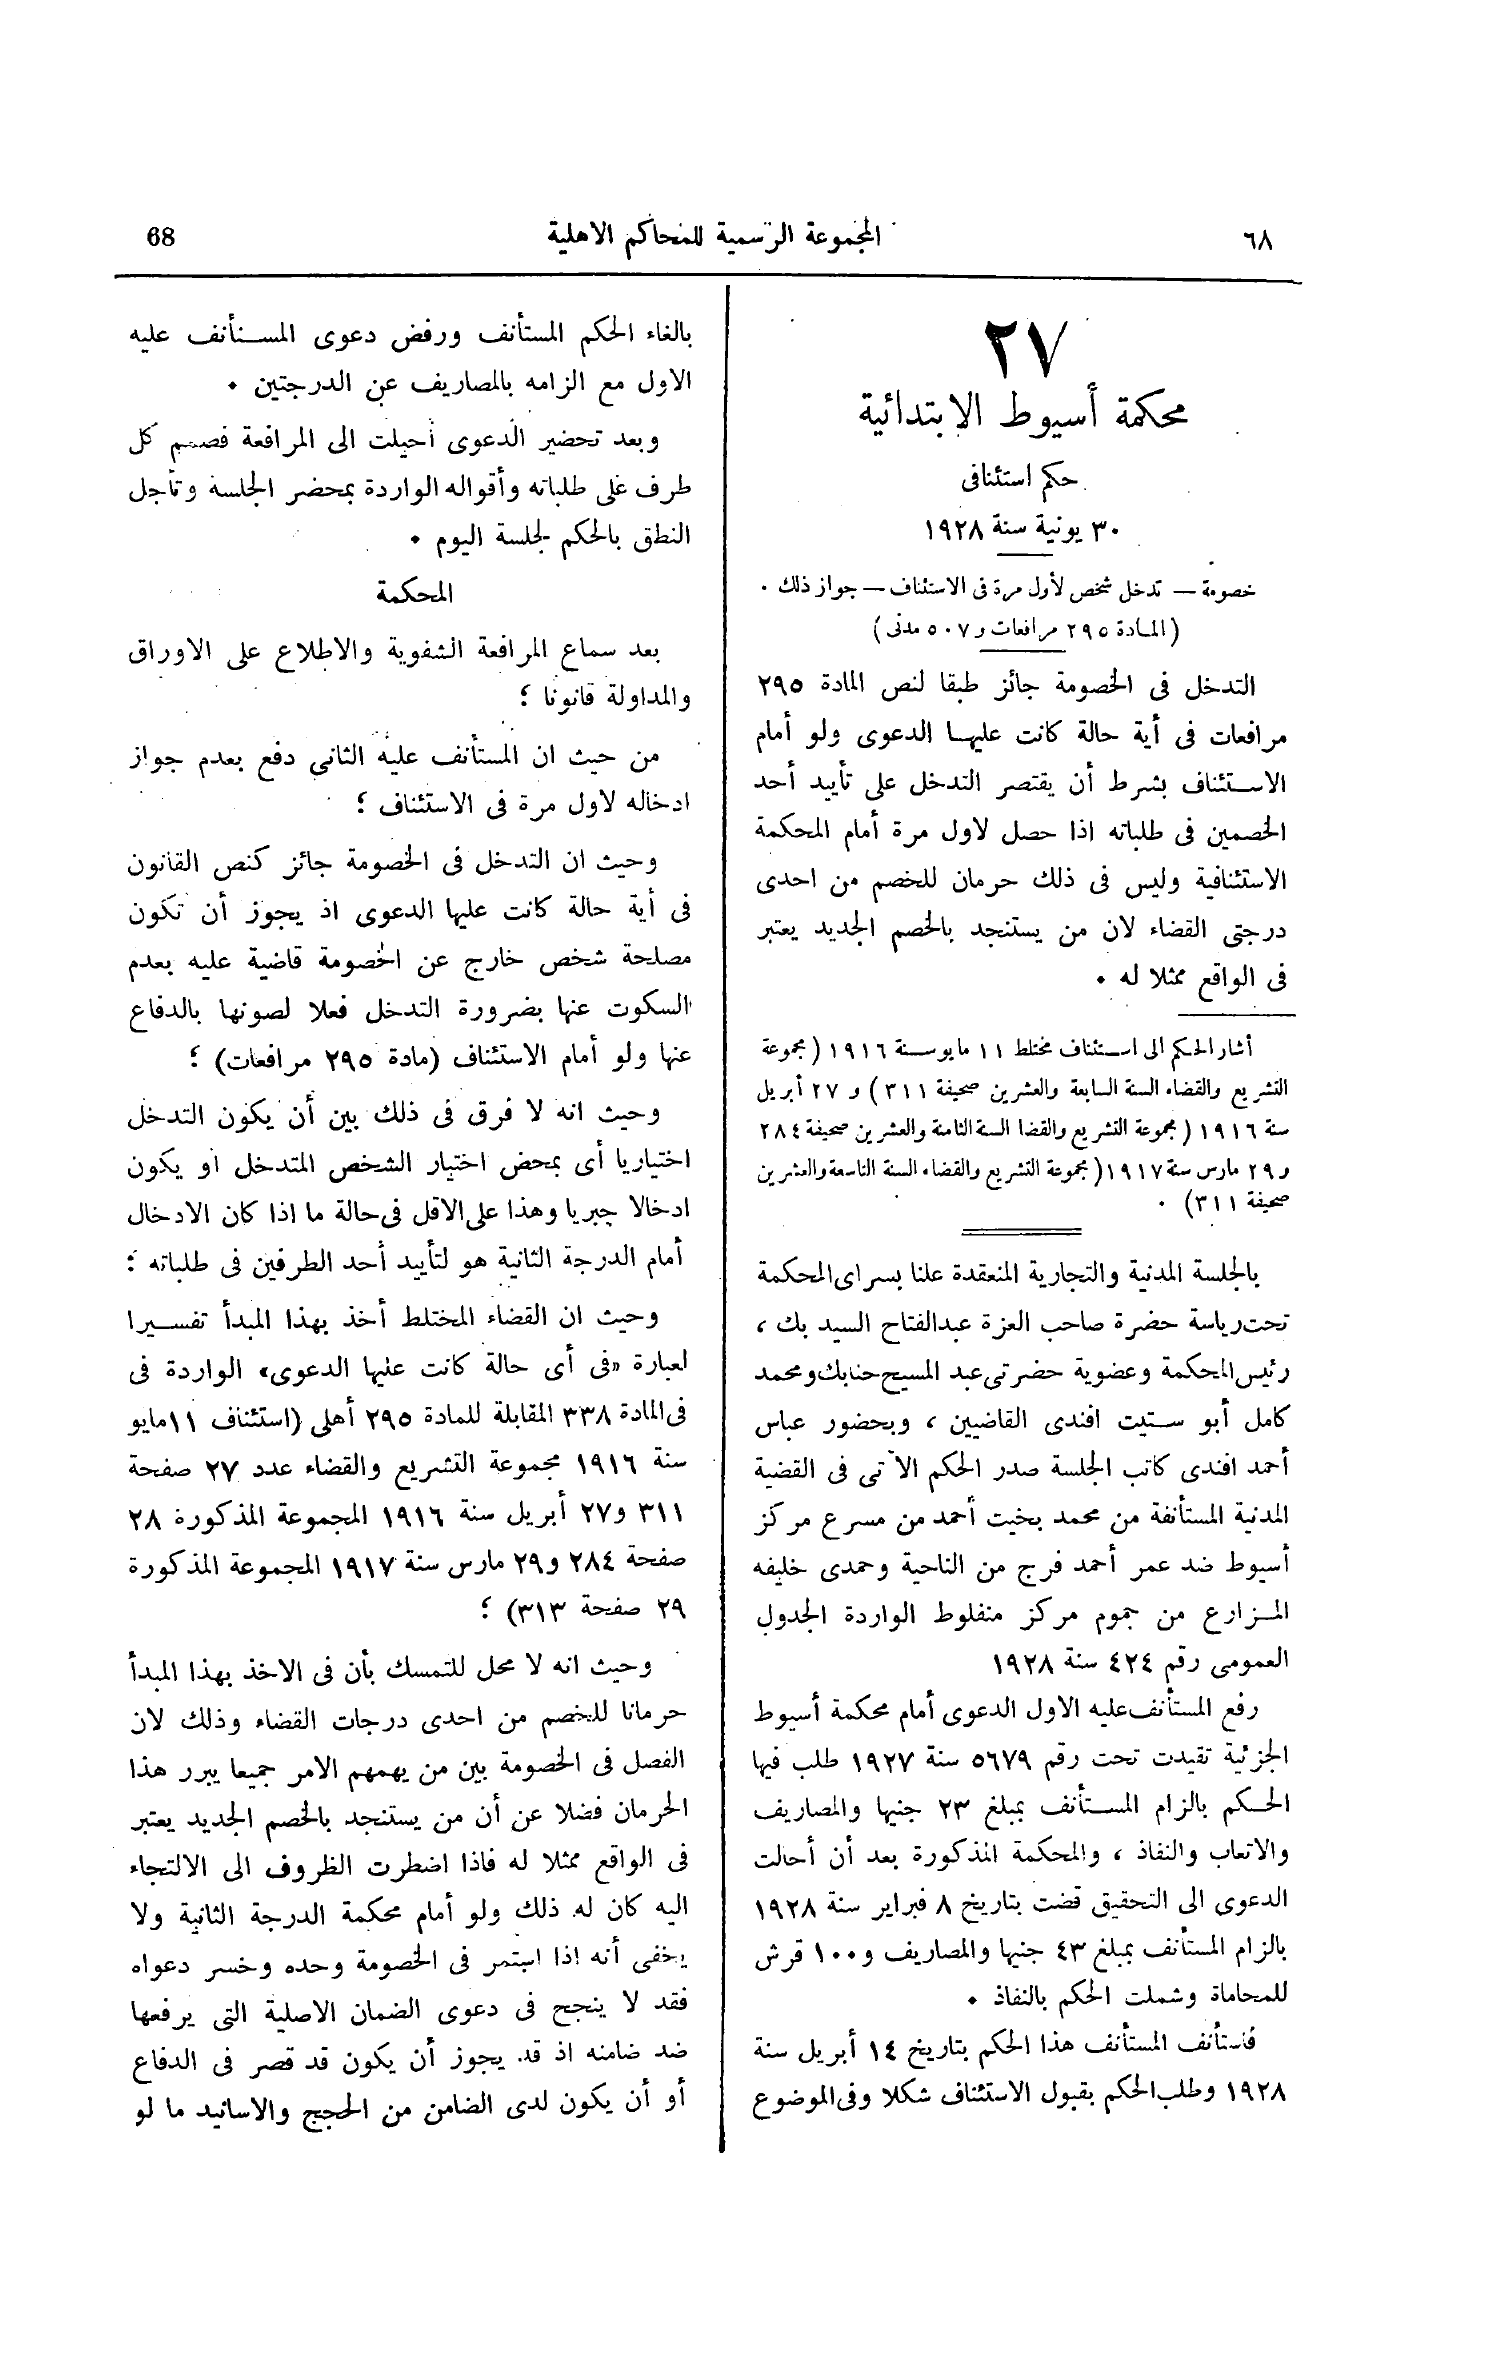 ٦٨
المجموعة الرسمية للمحاكم الاهلية
68
٢٧
محكمة أسيوط الابتدائية
حكم استئنافى
٣٠ يونية سنة ١٩٢٨
خصومة — تدخل شخص لأول مرة فى الاستئناف — جواز ذلك .
(المادة ٢٩٥ مرافعات و ٥٠٧ مدنى)
التدخل فى الخصومة جائز طبقا لنص المادة ٢٩٥
مرافعات فى أية حالة كانت عليها الدعوى ولو أمام
الاستئناف بشرط أن يقتصر التدخل على تأييد أحد
الخصمين فى طلباته اذا حصل لاول مرة أمام المحكمة
الاستئنافية وليس فى ذلك حرمان للخصم من احدى
درجتى القضاء لان من يستنجد بالخصم الجديد يعتبر
فى الواقع ممثلا له .
أشار الحكم الى استئناف مختلط ١١ مايو سنة ١٩١٦ (مجموعة
التشريع والقضاء السنة السابعة والعشرين صحيفة ٣١١) و ٢٧ أبريل
سنة ١٩١٦ (مجموعة التشريع والقضا السنة الثامنة والعشرين صحيفة ٢٨٤
و ٢٩ مارس سنة ١٩١٧ (مجموعة التشريع والقضاء السنة التاسعة والعشرين
صحيفة ٣١١) .
بالجلسة المدنية والتجارية المنعقدة علنا بسراى المحكمة
تحت رياسة حضرة صاحب العزة عبدالفتاح السيد بك ،
رئيس المحكمة وعضوية حضرتى عبد المسيح حنا بك ومحمد
كامل أبو ستيت افندى القاضيين ، وبحضور عباس
أحمد افندى كاتب الجلسة صدر الحكم الآتى فى القضية
المدنية المستأنفة من محمد بخيت أحمد من مسرع مركز
أسيوط ضد عمر أحمد فرج من الناحية وحمدى خليفه
المزارع من جموم مركز منفلوط الواردة الجدول
العمومى رقم ٤٢٤ سنة ١٩٢٨
رفع المستأنف عليه الاول الدعوى أمام محكمة أسيوط
الجزئية تقيدت تحت رقم ٥٦٧٩ سنة ١٩٢٧ طلب فيها
الحكم بالزام المستأنف بمبلغ ٢٣ جنيها والمصاريف
والاتعاب والنفاذ ، والمحكمة المذكورة بعد أن أحالت
الدعوى الى التحقيق قضت بتاريخ ٨ فبراير سنة ١٩٢٨
بالزام المستأنف بمبلغ ٤٣ جنيها والمصاريف و ١٠٠ قرش
للمحاماة وشملت الحكم بالنفاذ .
فاستأنف المستأنف هذا الحكم بتاريخ ١٤ أبريل سنة
١٩٢٨ وطلب الحكم بقبول الاستئناف شكلا وفى الموضوع
بالغاء الحكم المستأنف ورفض دعوى المستأنف عليه
الاول مع الزامه بالمصاريف عن الدرجتين .
وبعد تحضير الدعوى أحيلت الى المرافعة فصمم كل
طرف على طلباته وأقواله الواردة بمحضر الجلسة وتأجل
النطق بالحكم لجلسة اليوم .
المحكمة
بعد سماع المرافعة الشفوية والاطلاع على الاوراق
والمداولة قانونا ؛
من حيث ان المستأنف عليه الثانى دفع بعدم جواز
ادخاله لاول مرة فى الاستئناف ؛
وحيث ان التدخل فى الخصومة جائز كنص القانون
فى أية حالة كانت عليها الدعوى اذ يجوز أن تكون
مصلحة شخص خارج عن الخصومة قاضية عليه بعدم
السكوت عنها بضرورة التدخل فعلا لصونها بالدفاع
عنها ولو أمام الاستئناف (مادة ٢٩٥ مرافعات) ؛
وحيث انه لا فرق فى ذلك بين أن يكون التدخل
اختياريا أى بمحض اختيار الشخص المتدخل او يكون
ادخالا جبريا وهذا على الاقل فى حالة ما اذا كان الادخال
أمام الدرجة الثانية هو لتأييد أحد الطرفين فى طلباته ؛
وحيث ان القضاء المختلط أخذ بهذا المبدأ تفسيرا
لعبارة «فى أى حالة كانت عليها الدعوى» الواردة فى
فى المادة ٣٣٨ المقابلة للمادة ٢٩٥ أهلى (استئناف ١١ مايو
سنة ١٩١٦ مجموعة التشريع والقضاء عدد ٢٧ صفحة
٣١١ و٢٧ أبريل سنة ١٩١٦ المجموعة المذكورة ٢٨
صفحة ٢٨٤ و٢٩ مارس سنة ١٩١٧ المجموعة المذكورة
٢٩ صفحة ٣١٣) ؛
وحيث انه لا محل للتمسك بأن فى الاخذ بهذا المبدأ
حرمانا للخصم من احدى درجات القضاء وذلك لان
الفصل فى الخصومة بين من يهمهم الامر جميعا يبرر هذا
الحرمان فضلا عن أن من يستنجد بالخصم الجديد يعتبر
فى الواقع ممثلا له فاذا اضطرت الظروف الى الالتجاء
اليه كان له ذلك ولو أمام محكمة الدرجة الثانية ولا
يخفى أنه اذا استمر فى الخصومة وحده وخسر دعواه
فقد لا ينجح فى دعوى الضمان الاصلية التى يرفعها
ضد ضامنه اذ قد يجوز أن يكون قد قصر فى الدفاع
أو أن يكون لدى الضامن من الحجج والاسانيد ما لو